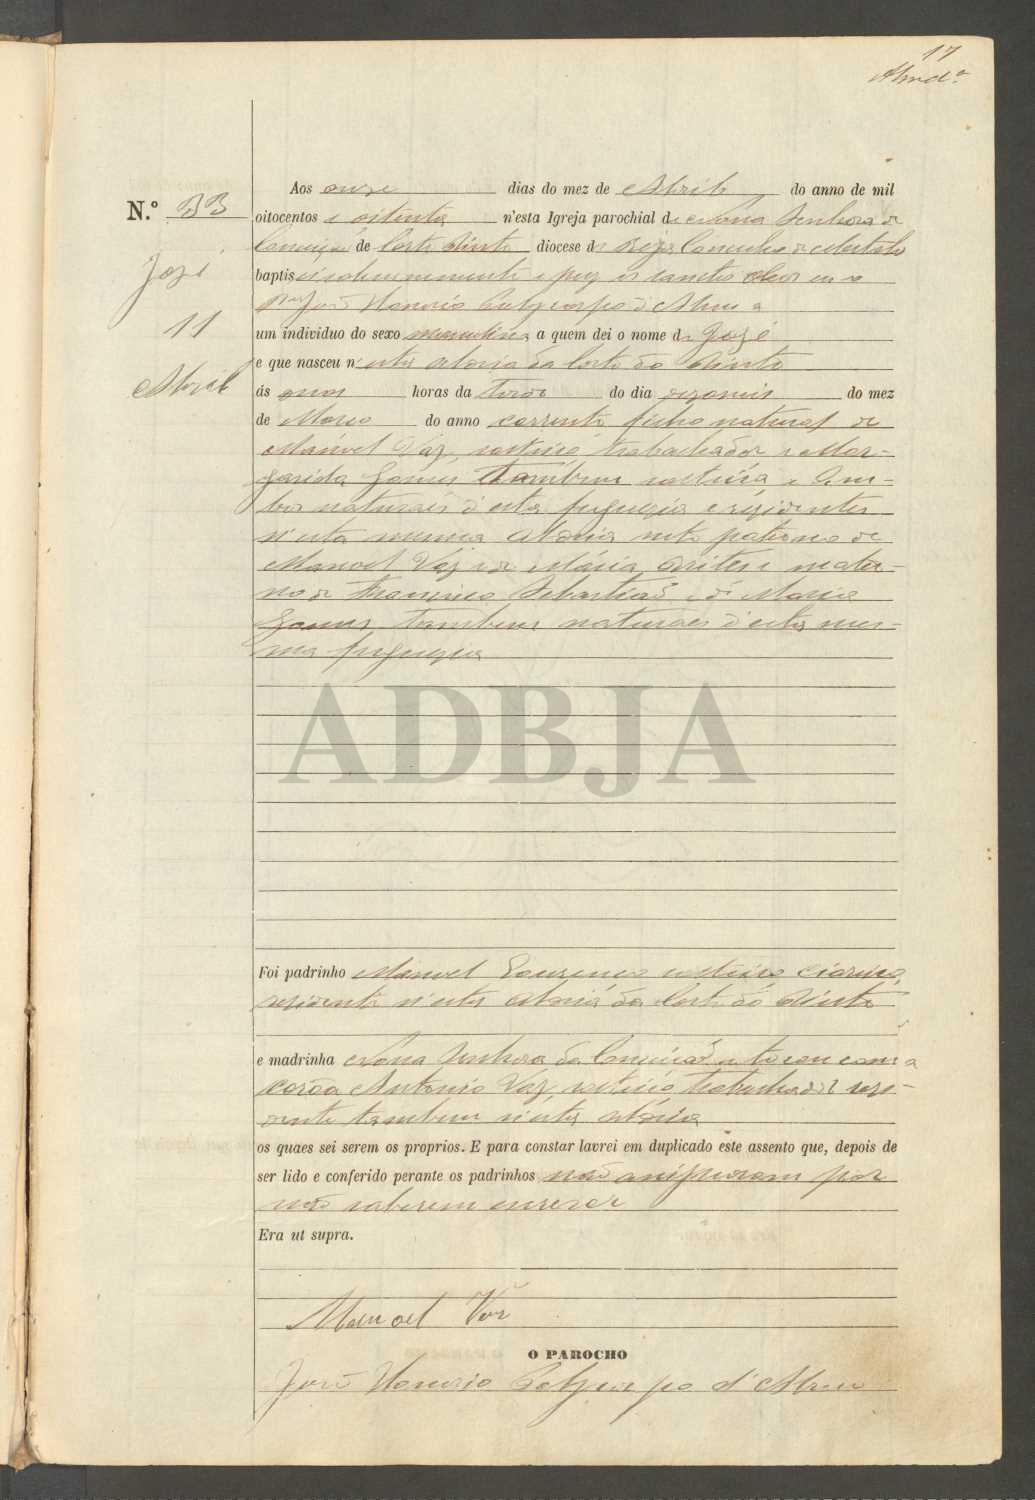 17
Almd.ª
Aos onze dias do mez de Abril do anno de mil
N.º 33
oitocentos e oitenta n'esta Igreja parochial de Nossa Senhora da
Conceiçaõ de Corte do Pinto diocese de Beja Concelho de Mertola
José
baptisei solemnemente e puz os santos oleos eu o
José Honorio Polycarpo d'Abreu a
11
um individuo do sexo masculino a quem dei o nome de José
e que nasceu n'esta aldeia da Corte do Pinto
Abril
ás onze horas da tarde do dia dezaseis do mez
de Março do anno corrente filho natural de
Manoel Vaz, trabalhador e Mar-
garida Gomes tambem e am-
bos naturaes d'esta freguezia e rezidentes
n'esta mesma aldeia neto paterno de
Manoel Vaz e de Maria e mater-
no de Francisco Sebastiaõ e de Maria
Gomes tambem naturaes d'esta mes-
ma freguezia
ADBJA
Foi padrinho Manoel Lourenço
rezidente n'esta aldeia da Corte do Pinto
e madrinha Nossa Senhora da Conceiçaõ e tocou com a
coroa Antonio Vaz, trabalhador rezi-
dente tambem n'esta aldeia
os quaes sei serem os proprios. E para constar lavrei em duplicado este assento que, depois de
ser lido e conferido perante os padrinhos naõ assignaram por
naõ saberem escrever
Era ut supra.
Manoel Vaz
O PAROCHO
José Honorio Polycarpo d'Abreu